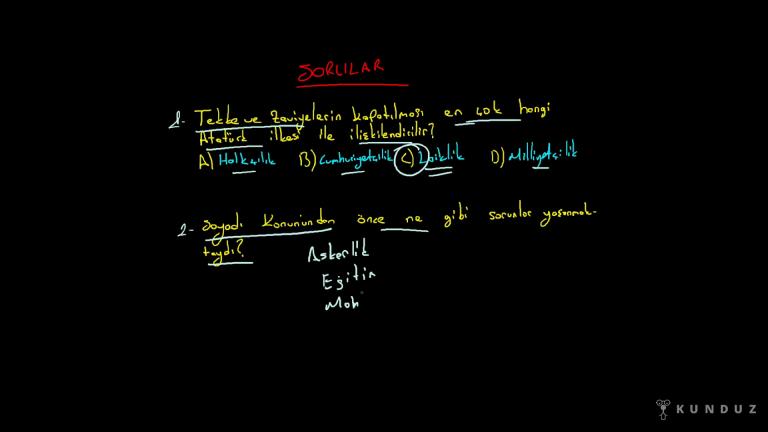 SORULAR
1- Tekke ve Zaviyelerin kapatılması en çok hangi
Atatürk ilkesi ile ilişkilendirilir?
A) Halkçılık B) Cumhuriyetçilik C) Laiklik D) Milliyetçilik
2- Soyadı Kanunundan önce ne gibi sorunlar yaşanmak-
taydı?
Askerlik
Eğitim
Mah
KUNDUZ